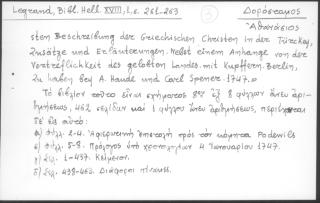 Legrand, Bibl. Hell. XVIII, 1, σ. 261-263
3
Δορόστομος
Ἀθανάσιος
sten Beschreibung der Griechischen Christen in der Türckey,
Zusätze und Erläuterungen. Nebst einem Anhange von der
Vortreflichkeit des gelobten Landes. mit Kupffern. Berlin,
zu haben bey A. Haude und Carl Spener. 1747.
Τὸ βιβλίον τοῦτο εἶναι σχήματος 8ον ἐξ 8 φύλλων ἄνευ ἀρι-
θμήσεως, 462 σελίδων καὶ 1 φύλλου ἄνευ ἀριθμήσεως,
δὲ εἰς αὐτό:
α) φύλ. 2-4. Ἀφιερωτικὴ ἐπιστολὴ πρὸς τὸν κόμητα Podewils
β) φύλ. 5-8. Πρόλογος ὑπὸ χρονολογίαν 4 Ἰανουαρίου 1747.
γ) Σελ. 1-437. Κείμενον.
δ) Σελ. 438-462. Διάφοροι πίνακες.